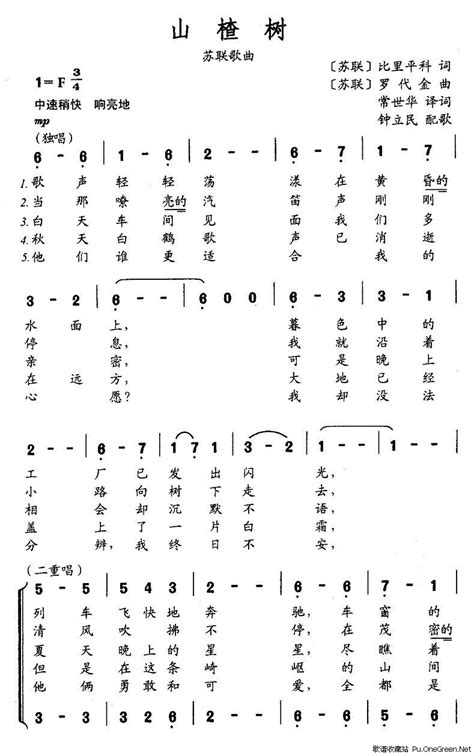 山楂树
苏联歌曲
1=F 3/4
〔苏联〕比里平科 词
〔苏联〕罗代金 曲
常世华 译词
钟立民 配歌
中速稍快 响亮地
mp
(独唱)
6 - 6 | 1 - 1 | 2 - - | 6 - 7 |
1.歌声轻轻荡漾在黄昏的
2.当那嘹亮的汽笛声刚刚
3.白天车间见面我们多
4.秋天白鹤歌声已消逝
5.他们谁更适合我的
3 - 2 | 6 - - | 6 0 0 | 6 - 3 | 3 - 1 |
水面上,暮色中的
停息,我就沿着
亲密,可是晚上
在远方,大地已经
心愿?我却没法
2 - - | 6 - 7 | 1 7 1 | 3 - 2 | 1 - - | 1 - - |
工厂已发出闪光,
小路向树下走去,
相会却沉默不语,
盖上了一片白霜,
分辨,我终日不安,
(二重唱)
5 - 5 | 5 - 4 | 2 - - | 6 - 6 | 7 - 1 |
列车飞快地奔驰,车窗的
清风吹拂不停,在茂密的
夏天晚上的星星,尽瞧着
但是在这条崎岖的山间
他俩勇敢和可爱,全都是
3 - 3 | 3 - 2 | 7 - - | 6 - 6 | 5 - 6 |
歌谱收藏站 Pu.OneGreen.Net